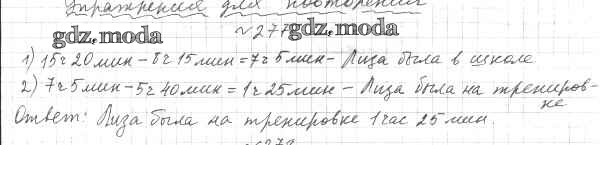 Упражнения для повторения
№277
gdz.moda gdz.moda
1) 15ч 20мин – 8ч 15мин = 7ч 5мин – Лиза была в школе
2) 7ч 5мин – 5ч 40мин = 1ч 25мин – Лиза была на трениров-
ке
Ответ: Лиза была на тренировке 1 час 25 мин.